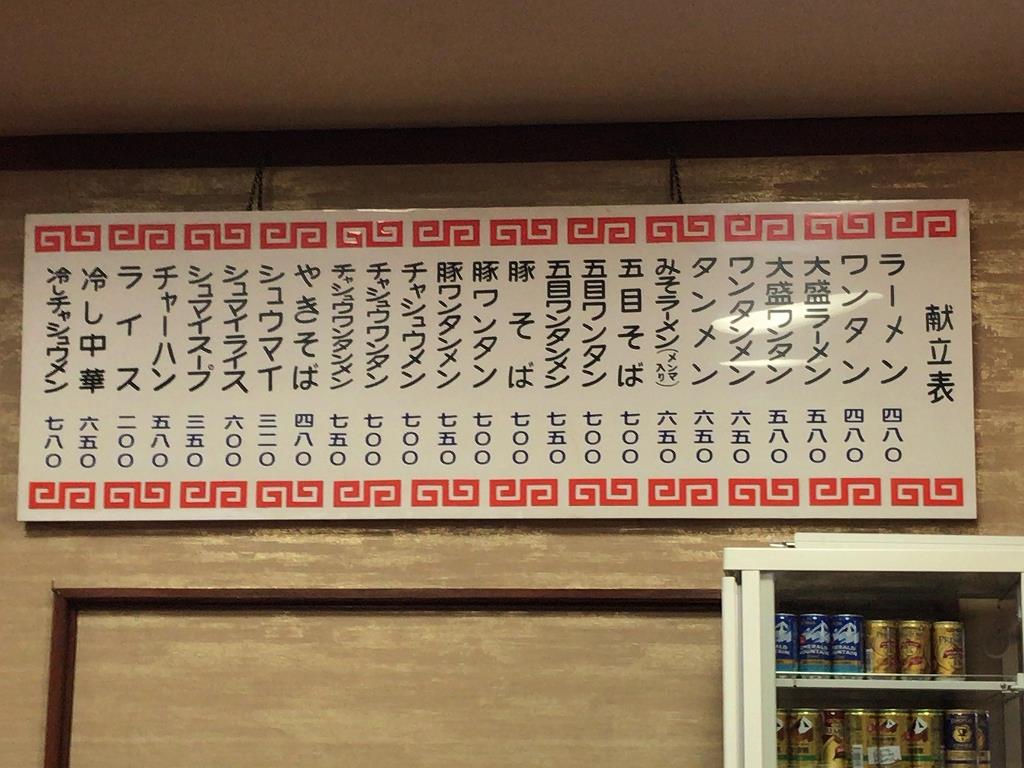 献立表
ラーメン 四八〇
ワンタン 四八〇
大盛ラーメン 五八〇
大盛ワンタン 五八〇
ワンタンメン 六五〇
タンメン 六五〇
みそラーメン(メンマ入り) 六五〇
五目そば 七〇〇
五目ワンタン 七〇〇
五目ワンタンメン 七五〇
豚そば 七〇〇
豚ワンタン 七〇〇
豚ワンタンメン 七五〇
チャシュウメン 七〇〇
チャシュウワンタン 七〇〇
チャシュウワンタンメン 七五〇
やきそば 四八〇
シュウマイ 三二〇
シュマイライス 六〇〇
シュマイスープ 三五〇
チャーハン 五八〇
ライス 二〇〇
冷し中華 六五〇
冷しチャシュウメン 七八〇
EMERALD MOUNTAIN
EMERALD MOUNTAIN